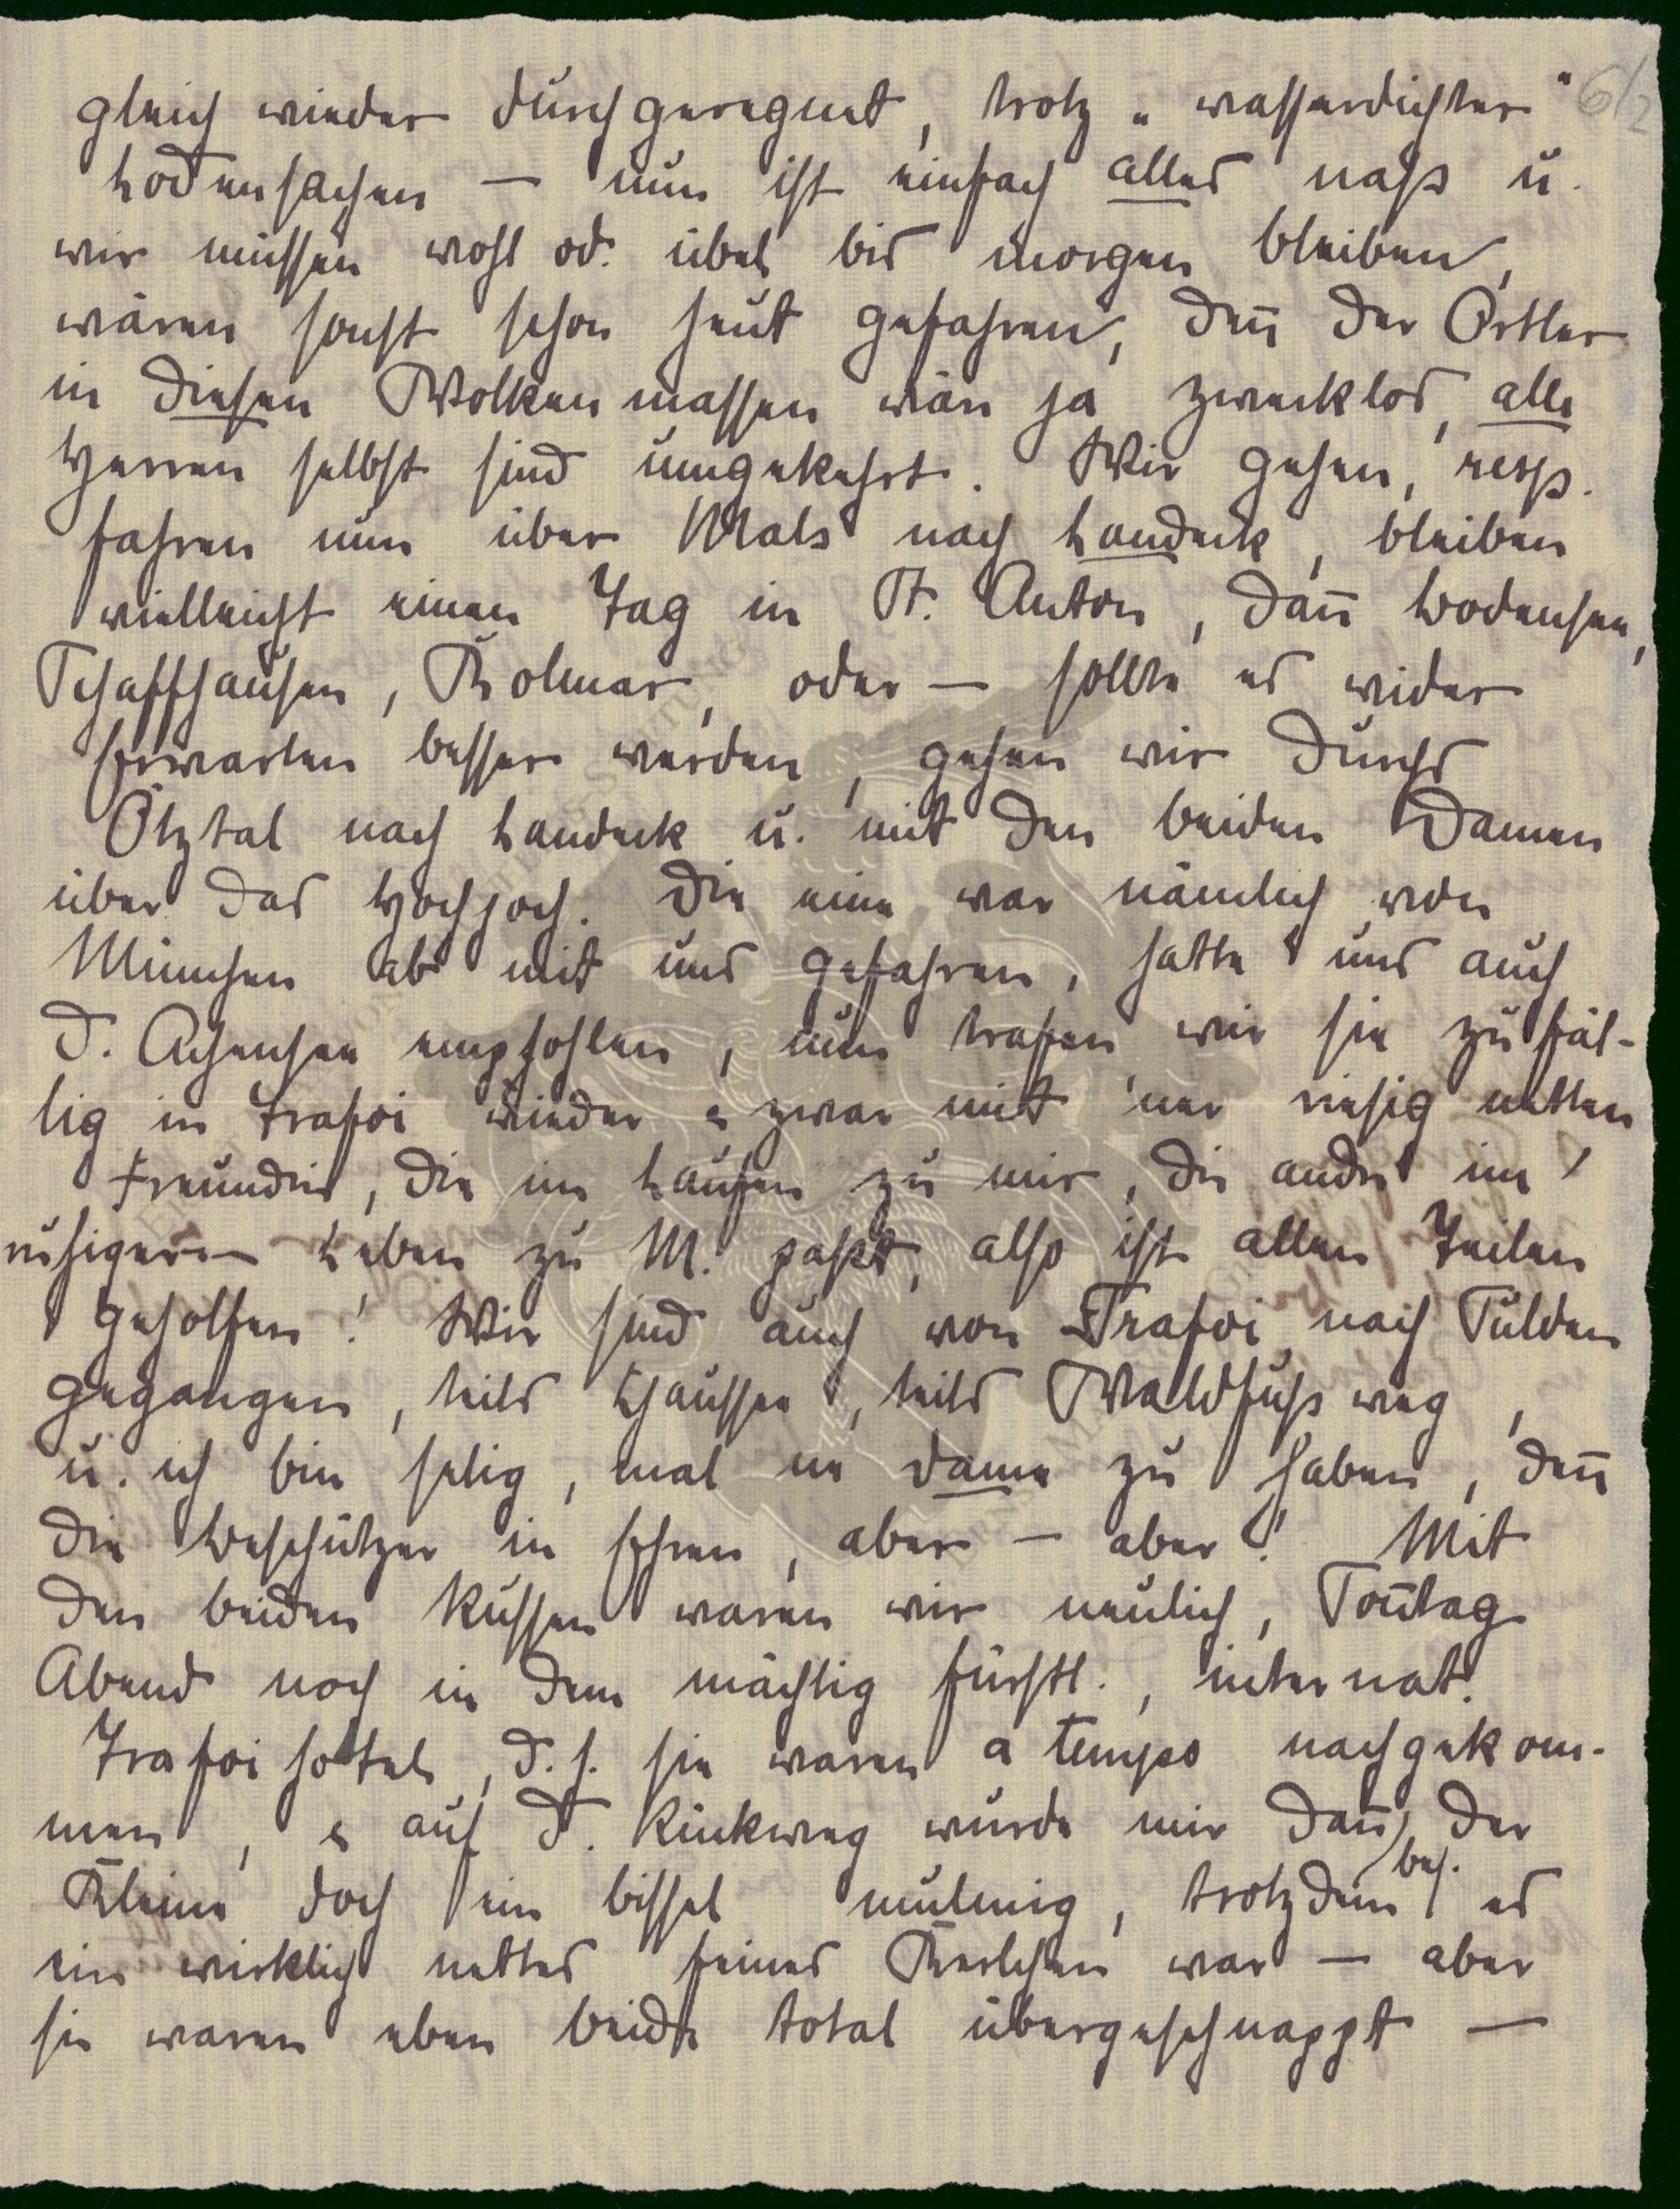 gleich wieder durchgeregnet, trotz „wasserdichter“ 6/2
Lodensachen — nun ist einfach alles naß u.
wir müssen wohl od. übel bis morgen bleiben,
wären sonst schon heut gefahren, deñ der Ortler
in diesen Wolkenmassen wär ja zwecklos, alle
Herren selbst sind umgekehrt. Wir gehen, resp.
fahren nun über Mals nach Landeck, bleiben
vielleicht einen Tag in St. Anton, dañ Bodensee,
Schaffhausen, Kolmar, oder — sollte es wider
Erwarten besser werden, gehen wir durchs
Ötztal nach Landeck u. mit den beiden Damen
über das Hochjoch. Die eine war nämlich von
München ab mit uns gefahren, hatte uns auch
d. Achensee empfohlen, nun trafen wir sie zufäl-
lig in Trafoi wieder & zwar mit 'ner riesig netten
Freundin, die im Laufen zu mir, die andre im
ruhigeren Leben zu M. paßt, also ist allen Teilen
geholfen! Wir sind auch von Trafoi nach Sulden
gegangen, teils Chaussee, teils Waldfußweg,
u. ich bin selig, mal ne Dame zu haben, deñ
die Beschützer in Ehren, aber — aber! Mit
den beiden Russen waren wir neulich, Soñtag
Abend noch in dem mächtig fürstl., internat.
Trafoihotel, d. h. sie waren a tempo nachgekom-
men, & auf d. Rückweg wurde mir dañ, der
Kleine doch ein bissel mulmig, trotzdem bes. es
ein wirklich nettes feines Kerlchen war — aber
sie waren eben beide total übergeschnappt —